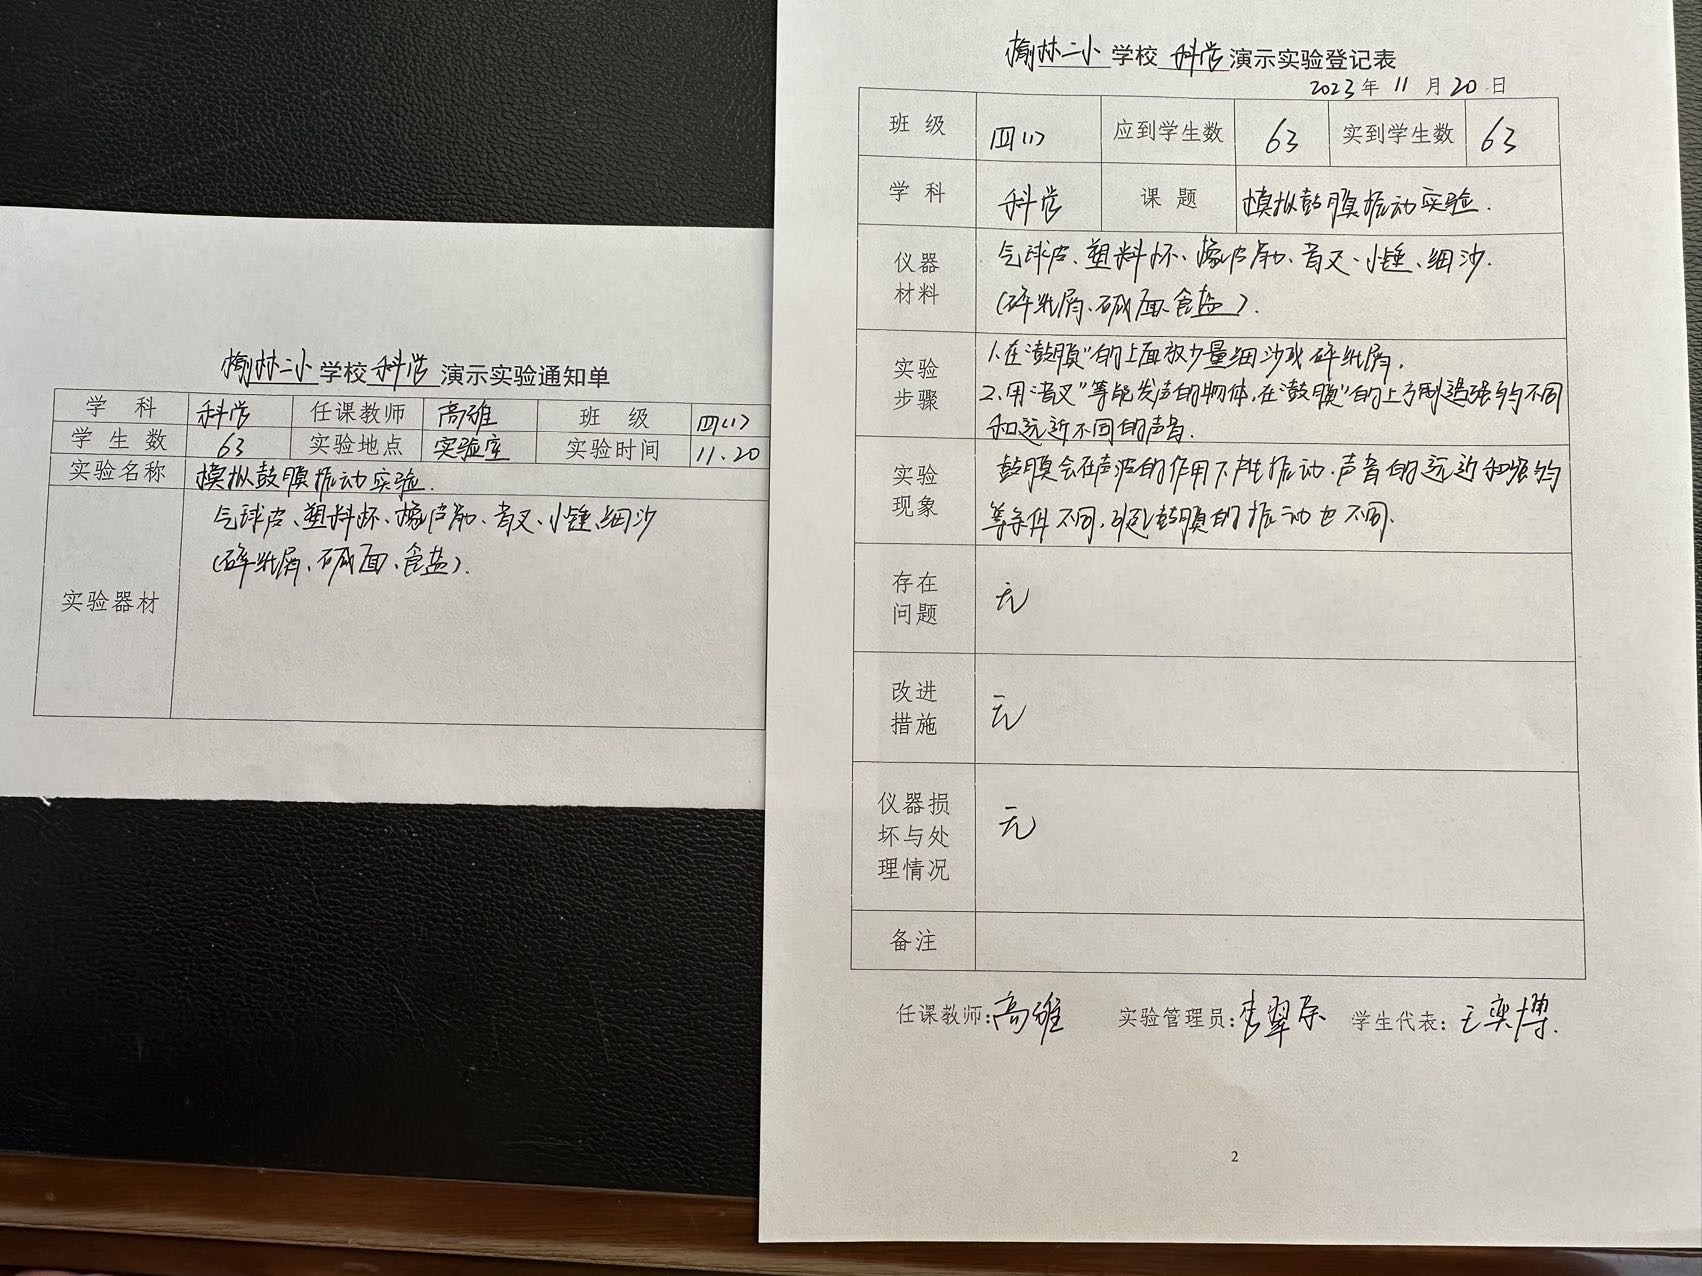 榆林二小学校科学演示实验通知单
学科 科学 任课教师 高雄 班级 四(1)
学生数 63 实验地点 实验室 实验时间 11.20
实验名称 模拟鼓膜振动实验.
实验器材 气球皮、塑料杯、橡皮筋、音叉、小锤、细沙
(碎纸屑、碱面、食盐).
榆林二小学校科学演示实验登记表
2023年11月20日
班级 四(1) 应到学生数 63 实到学生数 63
学科 科学 课题 模拟鼓膜振动实验.
仪器材料 气球皮、塑料杯、橡皮筋、音叉、小锤、细沙.
(碎纸屑、碱面、食盐).
实验步骤 1.在“鼓膜”的上面放少量细沙或碎纸屑.
2.用“音叉”等能发声的物体,在“鼓膜”的上方制造强弱不同
和远近不同的声音.
实验现象 鼓膜会在声波的作用下产生振动.声音的远近和强弱
等条件不同,引起鼓膜的振动也不同.
存在问题 无
改进措施 无
仪器损坏与处理情况 无
备注
任课教师:高雄 实验管理员:李翠 学生代表:王奕博.
2